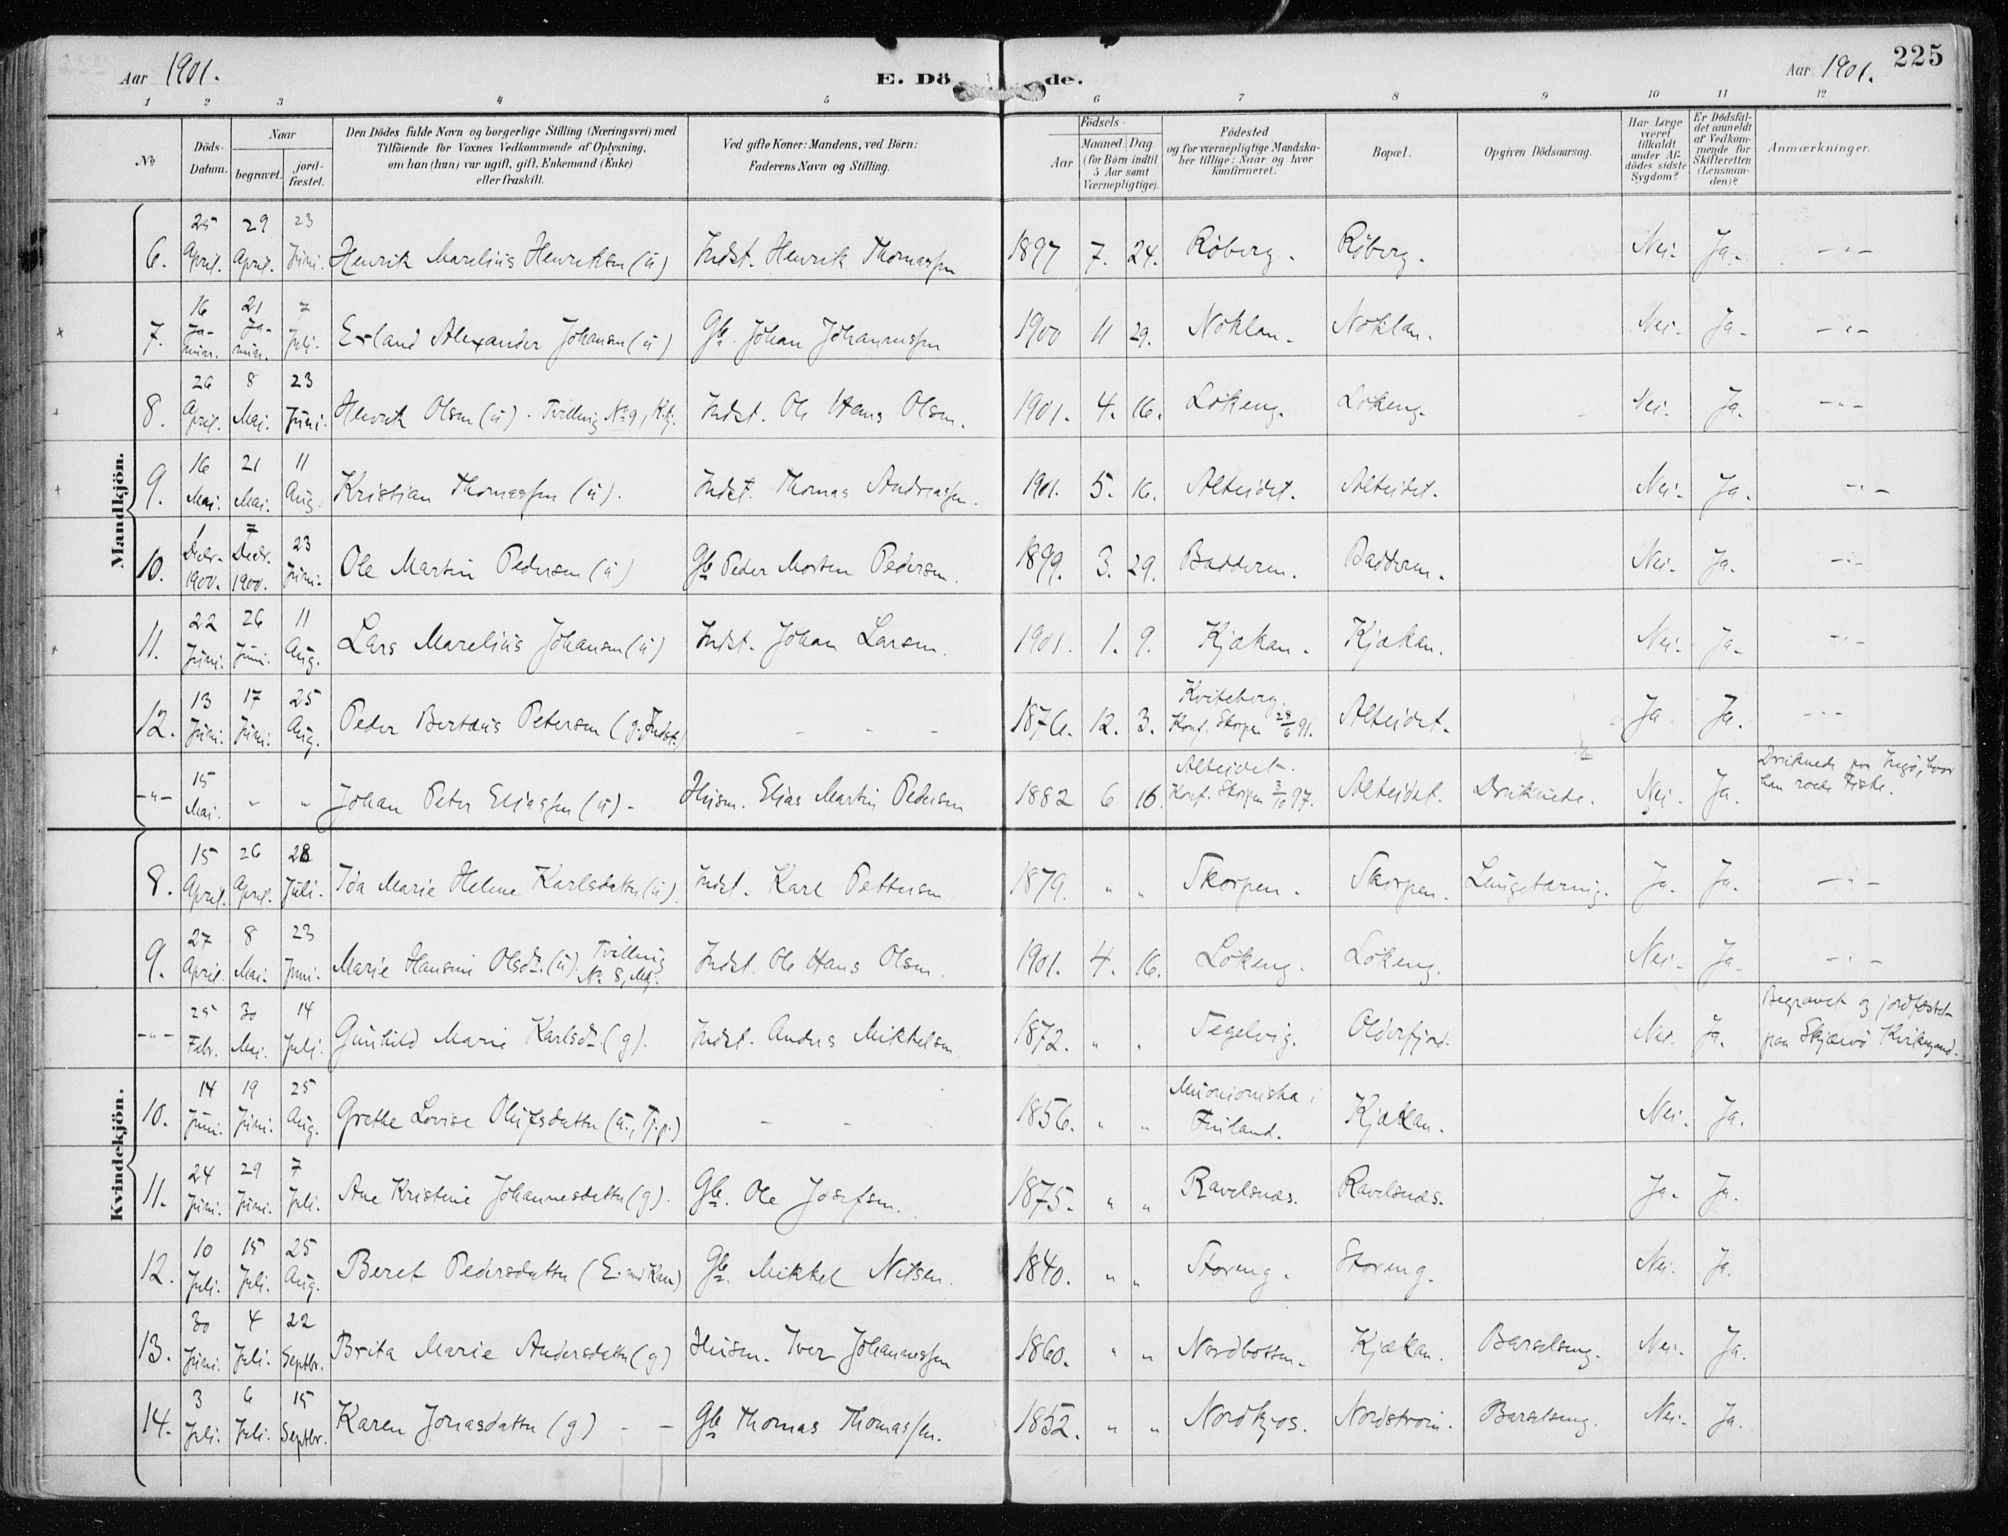 Aar 1901.
E. Dö de.
Aar 1901.
225
1 2 3 4 5 6 7 8 9 10 11 12
No
Döds-
Datum.
Naar
begravet.
jord-
fæstet.
Den Dödes fulde Navn og borgerlige Stilling (Næringsvei) med
Tilföiende for Voxnes Vedkommende af Oplysning,
om han (hun) var ugift, gift, Enkemand (Enke)
eller fraskilt.
Ved gifte Koner: Mandens, ved Börn:
Faderens Navn og Stilling.
Födsels-
Aar
Maaned Dag
(for Börn indtil
5 Aar samt
Værnepligtige).
Födested
og for værnepligtige Mandska-
ber tillige: Naar og hvor
konfirmeret.
Bopæl.
Opgiven Dödsaarsag.
Har Læge
været
tilkaldt
under Af-
dödes sidste
Sygdom?
Er Dödsfal-
det anmeldt
af Vedkom-
mende for
Skifteretten
(Lensman-
den)?
Anmærkninger.
Mandkjön.
6. 25 April. 29 April. 23 Juni. Henrik Marelius Henriksen (u) Indst. Henrik Thomassen 1897 7. 24. Röberg. Röberg. Nei- Ja- -"-
7. 16 Januar. 21 Januar. 7 Juli. Erland Alexander Johansen (u) Gb. Johan Johannessen 1900 11 29. Noklan. Noklan. Nei- Ja- -"-
8. 26 April. 8 Mai. 23 Juni. Henrik Olsen (u) - Tvilling No 9, Kkj. Indst. Ole Hans Olsen. 1901. 4. 16. Lökeng. Lökeng. Nei. Ja. -"-
9. 16 Mai. 21 Mai. 11 Aug. Kristian Thomassen (u). Indst. Thomas Andreassen. 1901. 5. 16. Alteidet. Alteidet. Nei- Ja. -"-
10. 1 Decbr. 1900. 7 Decbr. 1900. 23 Juni. Ole Martin Pedersen (u) Gb. Peder Morten Pedersen. 1899. 3. 29. Badderen. Badderen. Nei- Ja. -"-
11. 22 Juni. 26 Juni. 11 Aug. Lars Marelius Johansen (u) Indst. Johan Larsen. 1901. 1. 9. Kjækan. Kjækan. Nei- Ja- -"-
12. 13 Juni. 17 Juni. 25 Aug. Peder Bertæus Petersen (g. Indst.) - - - 1876. 12. 3. Kviteberg. Konf. Skorpen 28/6 91. Alteidet. Ja Ja. -"-
-"- 15 Mai. " " Johan Peter Eliassen (u) - Husm. Elias Martin Pedersen 1882 6 16. Alteidet. Konf. Skorpen 3/10 97. Alteidet. Druknede. Nei. Ja. Druknede paa Ingö, hvor
han roede Fiske.
Kvindekjön.
8. 15 April. 26 April. 28 Juli. Ida Marie Helene Karlsdatter (u). Indst. Karl Pettersen 1879. " " Skorpen. Skorpen. Lungetæring. Ja. Ja. -"-
9. 27 April. 8 Mai. 23 Juni. Marie Hansine Olsdtr. (u). Tvilling No 8, Mkj. Indst. Ole Hans Olsen. 1901. 4. 16. Lökeng. Lökeng. Nei- Ja. -"-
-"- 25 Febr. 30 Mai. 14 Juli. Gunhild Marie Karlsdtr (g). Indst. Anders Mikkelsen 1872. " " Tegelvig. Olderfjord. Nei. Ja. Begravet og jordfæstet
paa Skjærvö Kirkegaard.
10. 14 Juni. 19 Juni. 25 Aug. Grethe Lovise Olufsdatter (u., Tj.p.) - - 1856. " " Muonioniska i Finland. Kjækan. Nei. Ja.
11. 24 Juni. 29 Juni. 7 Juli. Ane Kristine Johannesdatter (g). Gb. Ole Josefsen. 1875. " " Ravelsnæs. Ravelsnæs. Ja. Ja.
12. 10 Juli. 15 Juli. 25 Aug. Beret Pedersdatter Gb. Mikkel Nilsen. 1840. " " Storeng. Storeng. Nei. Ja.
13. 30 Juni. 4 Juli. 22 Septbr. Brita Marie Andersdatter (g) Husm. Iver Johannessen 1860. " " Nordbotten. Kjækan. Barselseng. Nei- Ja.
14. 3 Juli. 6 Juli. 15 Septbr. Karen Jonasdatter (g) - - Gb. Thomas Thomassen. 1852. " " Nordkjos. Nordström. Barselseng. Nei- Ja.